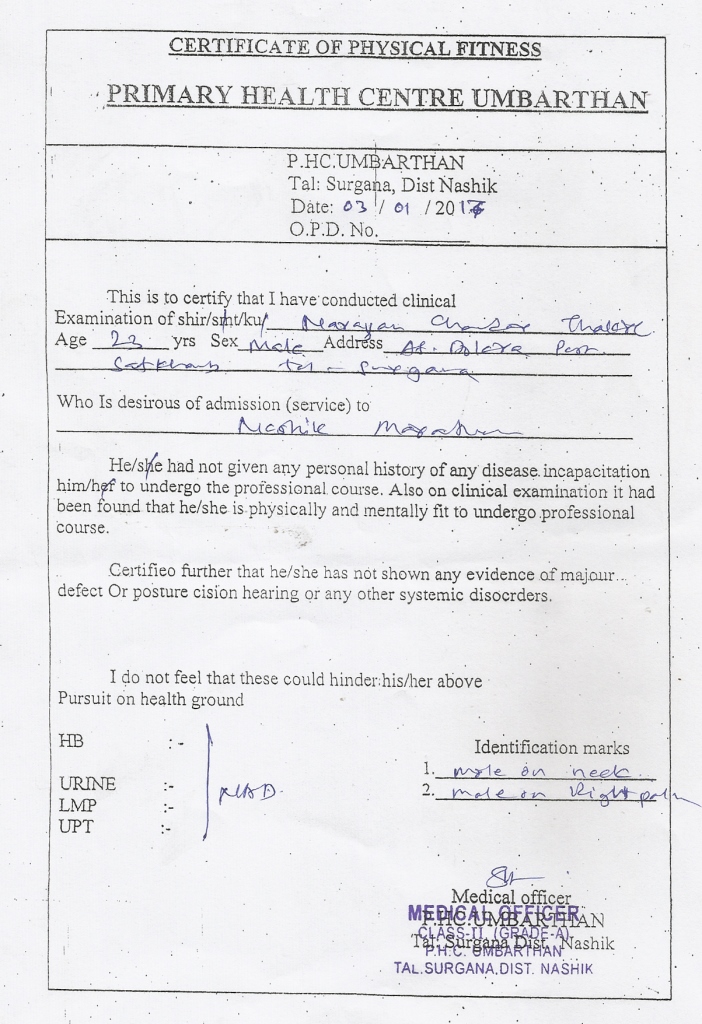 CERTIFICATE OF PHYSICAL FITNESS
PRIMARY HEALTH CENTRE UMBARTHAN
P.HC.UMBARTHAN
Tal: Surgana, Dist Nashik
Date: 03 / 01 / 201
O.P.D. No.
This is to certify that I have conducted clinical
Examination of shir/smt/ku/ Narayan
Age 23 yrs Sex Male Address At.
tal - Surgana
Who Is desirous of admission (service) to
Nashik
He/she had not given any personal history of any disease incapacitation
him/her to undergo the professional course. Also on clinical examination it had
been found that he/she is physically and mentally fit to undergo professional
course.
Certifieo further that he/she has not shown any evidence of majour
defect Or posture cision hearing or any other systemic disocrders.
I do not feel that these could hinder his/her above
Pursuit on health ground
HB :-
URINE :-
LMP :-
UPT :-
NAD.
Identification marks
1. mole on neck
2. mole on Right palm
Medical officer
P.HC.UMBARTHAN
Tal: Surgana Dist. Nashik
MEDICAL OFFICER
CLASS-II, (GRADE-A)
P.H.C. UMBARTHAN
TAL.SURGANA.DIST. NASHIK